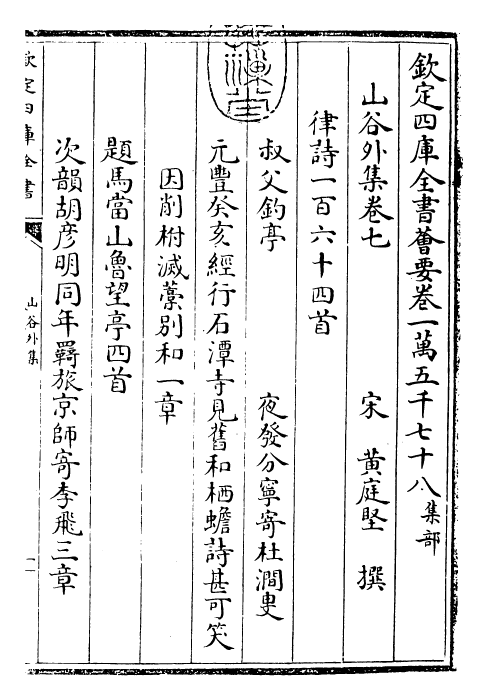 欽定四庫全書薈要卷一萬五千七十八集部
山谷外集卷七
宋 黃庭堅 撰
律詩一百六十四首
叔父釣亭 夜發分寧寄杜澗叟
元豐癸亥經行石潭寺見舊和栖蟾詩甚可笑
因削柎滅藁別和一章
題馬當山魯望亭四首
次韻胡彦明同年羇旅京師寄李飛三章
欽定四庫全書
山谷外集
一